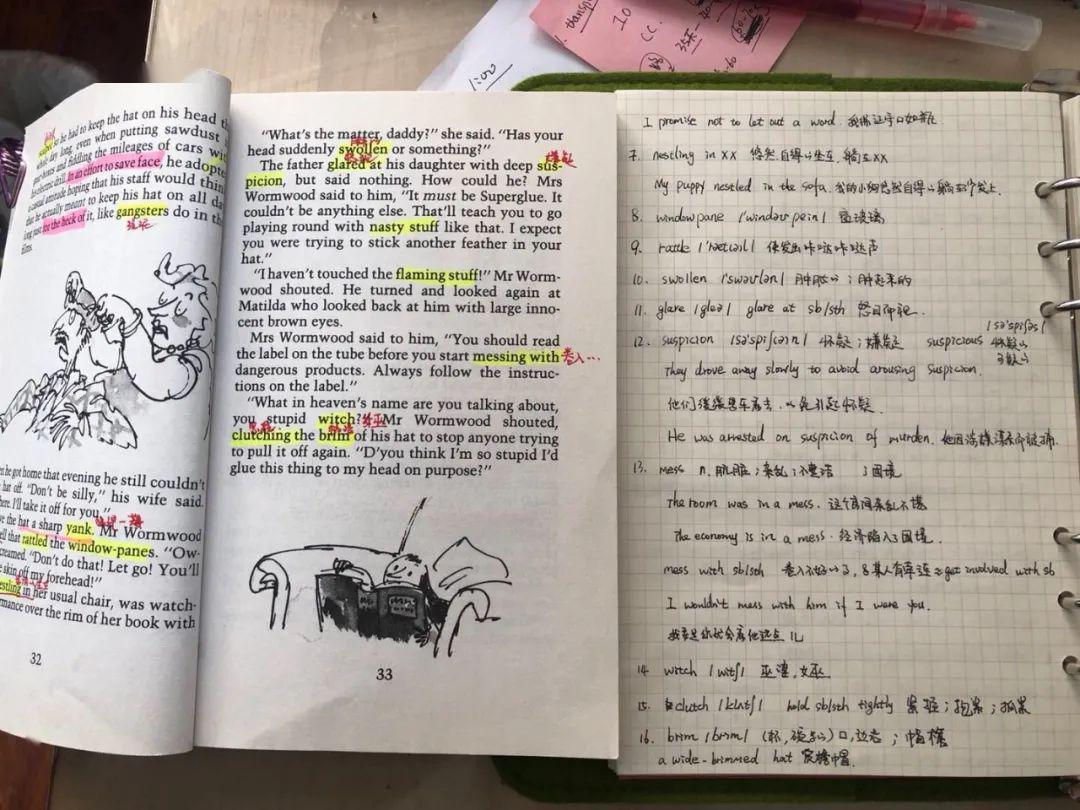 so he had to keep the hat on his head
day long, even when putting sawdust
boxes and fiddling the mileages of cars
electric drill. In an effort to save face, he
a casual attitude hoping that his staff would
that he actually meant to keep his hat on all
long just for the heck of it, like gangsters do in
films.
he got home that evening he still couldn't
hat off. "Don't be silly," his wife said.
I'll take it off for you."
the hat a sharp yank. Mr Wormwood
that rattled the window-panes. "Ow-
screamed. "Don't do that! Let go! You'll
skin off my forehead!"
in her usual chair, was watch-
over the rim of her book with
32
"What's the matter, daddy?" she said. "Has your
head suddenly swollen or something?"
The father glared at his daughter with deep sus-
嫌疑
picion, but said nothing. How could he? Mrs
Wormwood said to him, "It must be Superglue. It
couldn't be anything else. That'll teach you to go
playing round with nasty stuff like that. I expect
you were trying to stick another feather in your
hat."
"I haven't touched the flaming stuff!" Mr Worm-
wood shouted. He turned and looked again at
Matilda who looked back at him with large inno-
cent brown eyes.
Mrs Wormwood said to him, "You should read
the label on the tube before you start messing with 卷入…
dangerous products. Always follow the instruc-
tions on the label."
"What in heaven's name are you talking about,
you stupid witch?" 女巫 Mr Wormwood shouted,
clutching the brim of his hat to stop anyone trying
to pull it off again. "D'you think I'm so stupid I'd
glue this thing to my head on purpose?"
33
I promise not to let out a word. 我保证守口如瓶
7. nestling in xx 悠然自得地坐在,躺在xx
My puppy nestled in the sofa. 我的小狗悠然自得地躺在沙发上.
8. windowpane 窗玻璃
9. rattle 使发出咔哒咔哒声
10. swollen 肿胀的;肿起来的
11. glare /gleə/ glare at sb/sth 怒目而视.
12. suspicion 怀疑;嫌疑 suspicious 怀疑的
可疑的
They drove away slowly to avoid arousing suspicion.
他们缓缓驱车离去,以免引起怀疑.
He was arrested on suspicion of murder. 他因涉嫌谋杀而被捕.
13. mess n. 肮脏;杂乱;不整洁 ;困境
The room was in a mess. 这个房间杂乱不堪
The economy is in a mess. 经济陷入了困境.
mess with sb/sth 卷入不好的事,与某人有牵连 ≈ get involved with sb
I wouldn't mess with him if I were you.
我要是你就会离他远点儿
14 witch /witʃ/ 巫婆,女巫
15. clutch /klʌtʃ/ hold sb/sth tightly 紧握;抱紧;抓紧
16. brim /brim/ (杯,碗等的)口,边沿;帽檐
a wide-brimmed hat 宽檐帽.